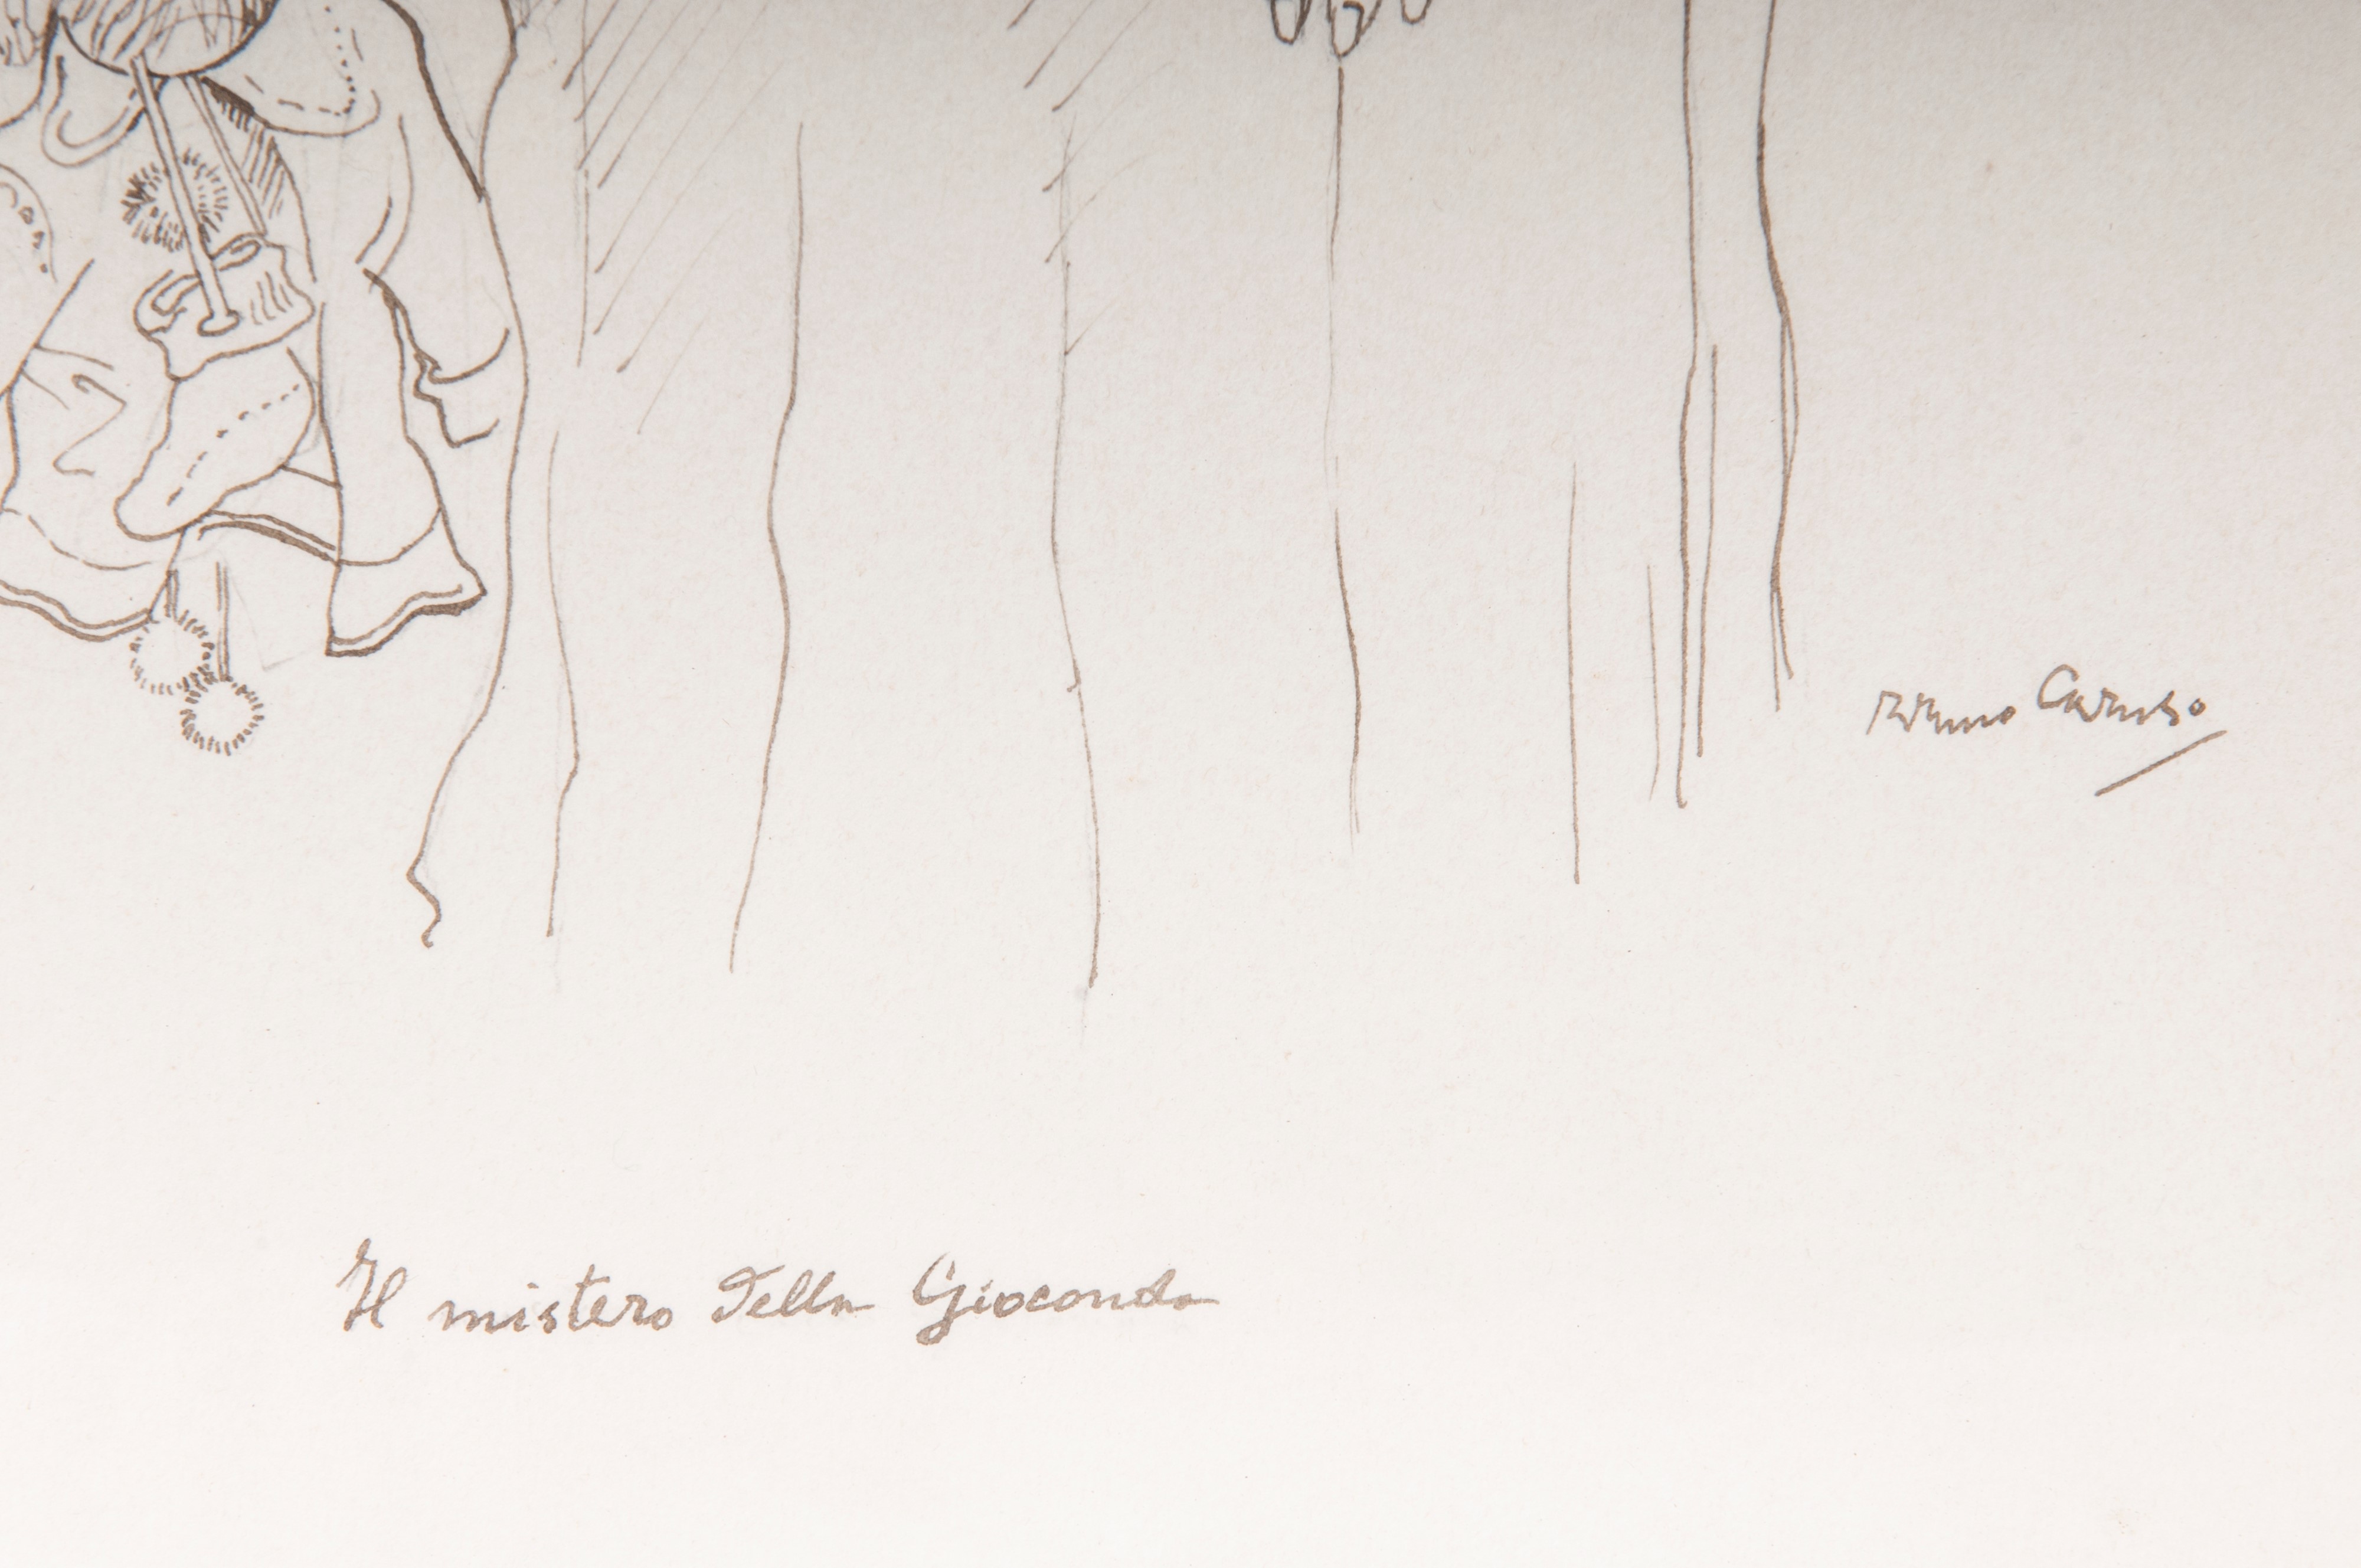 Bruno Caruso
Il mistero della Gioconda